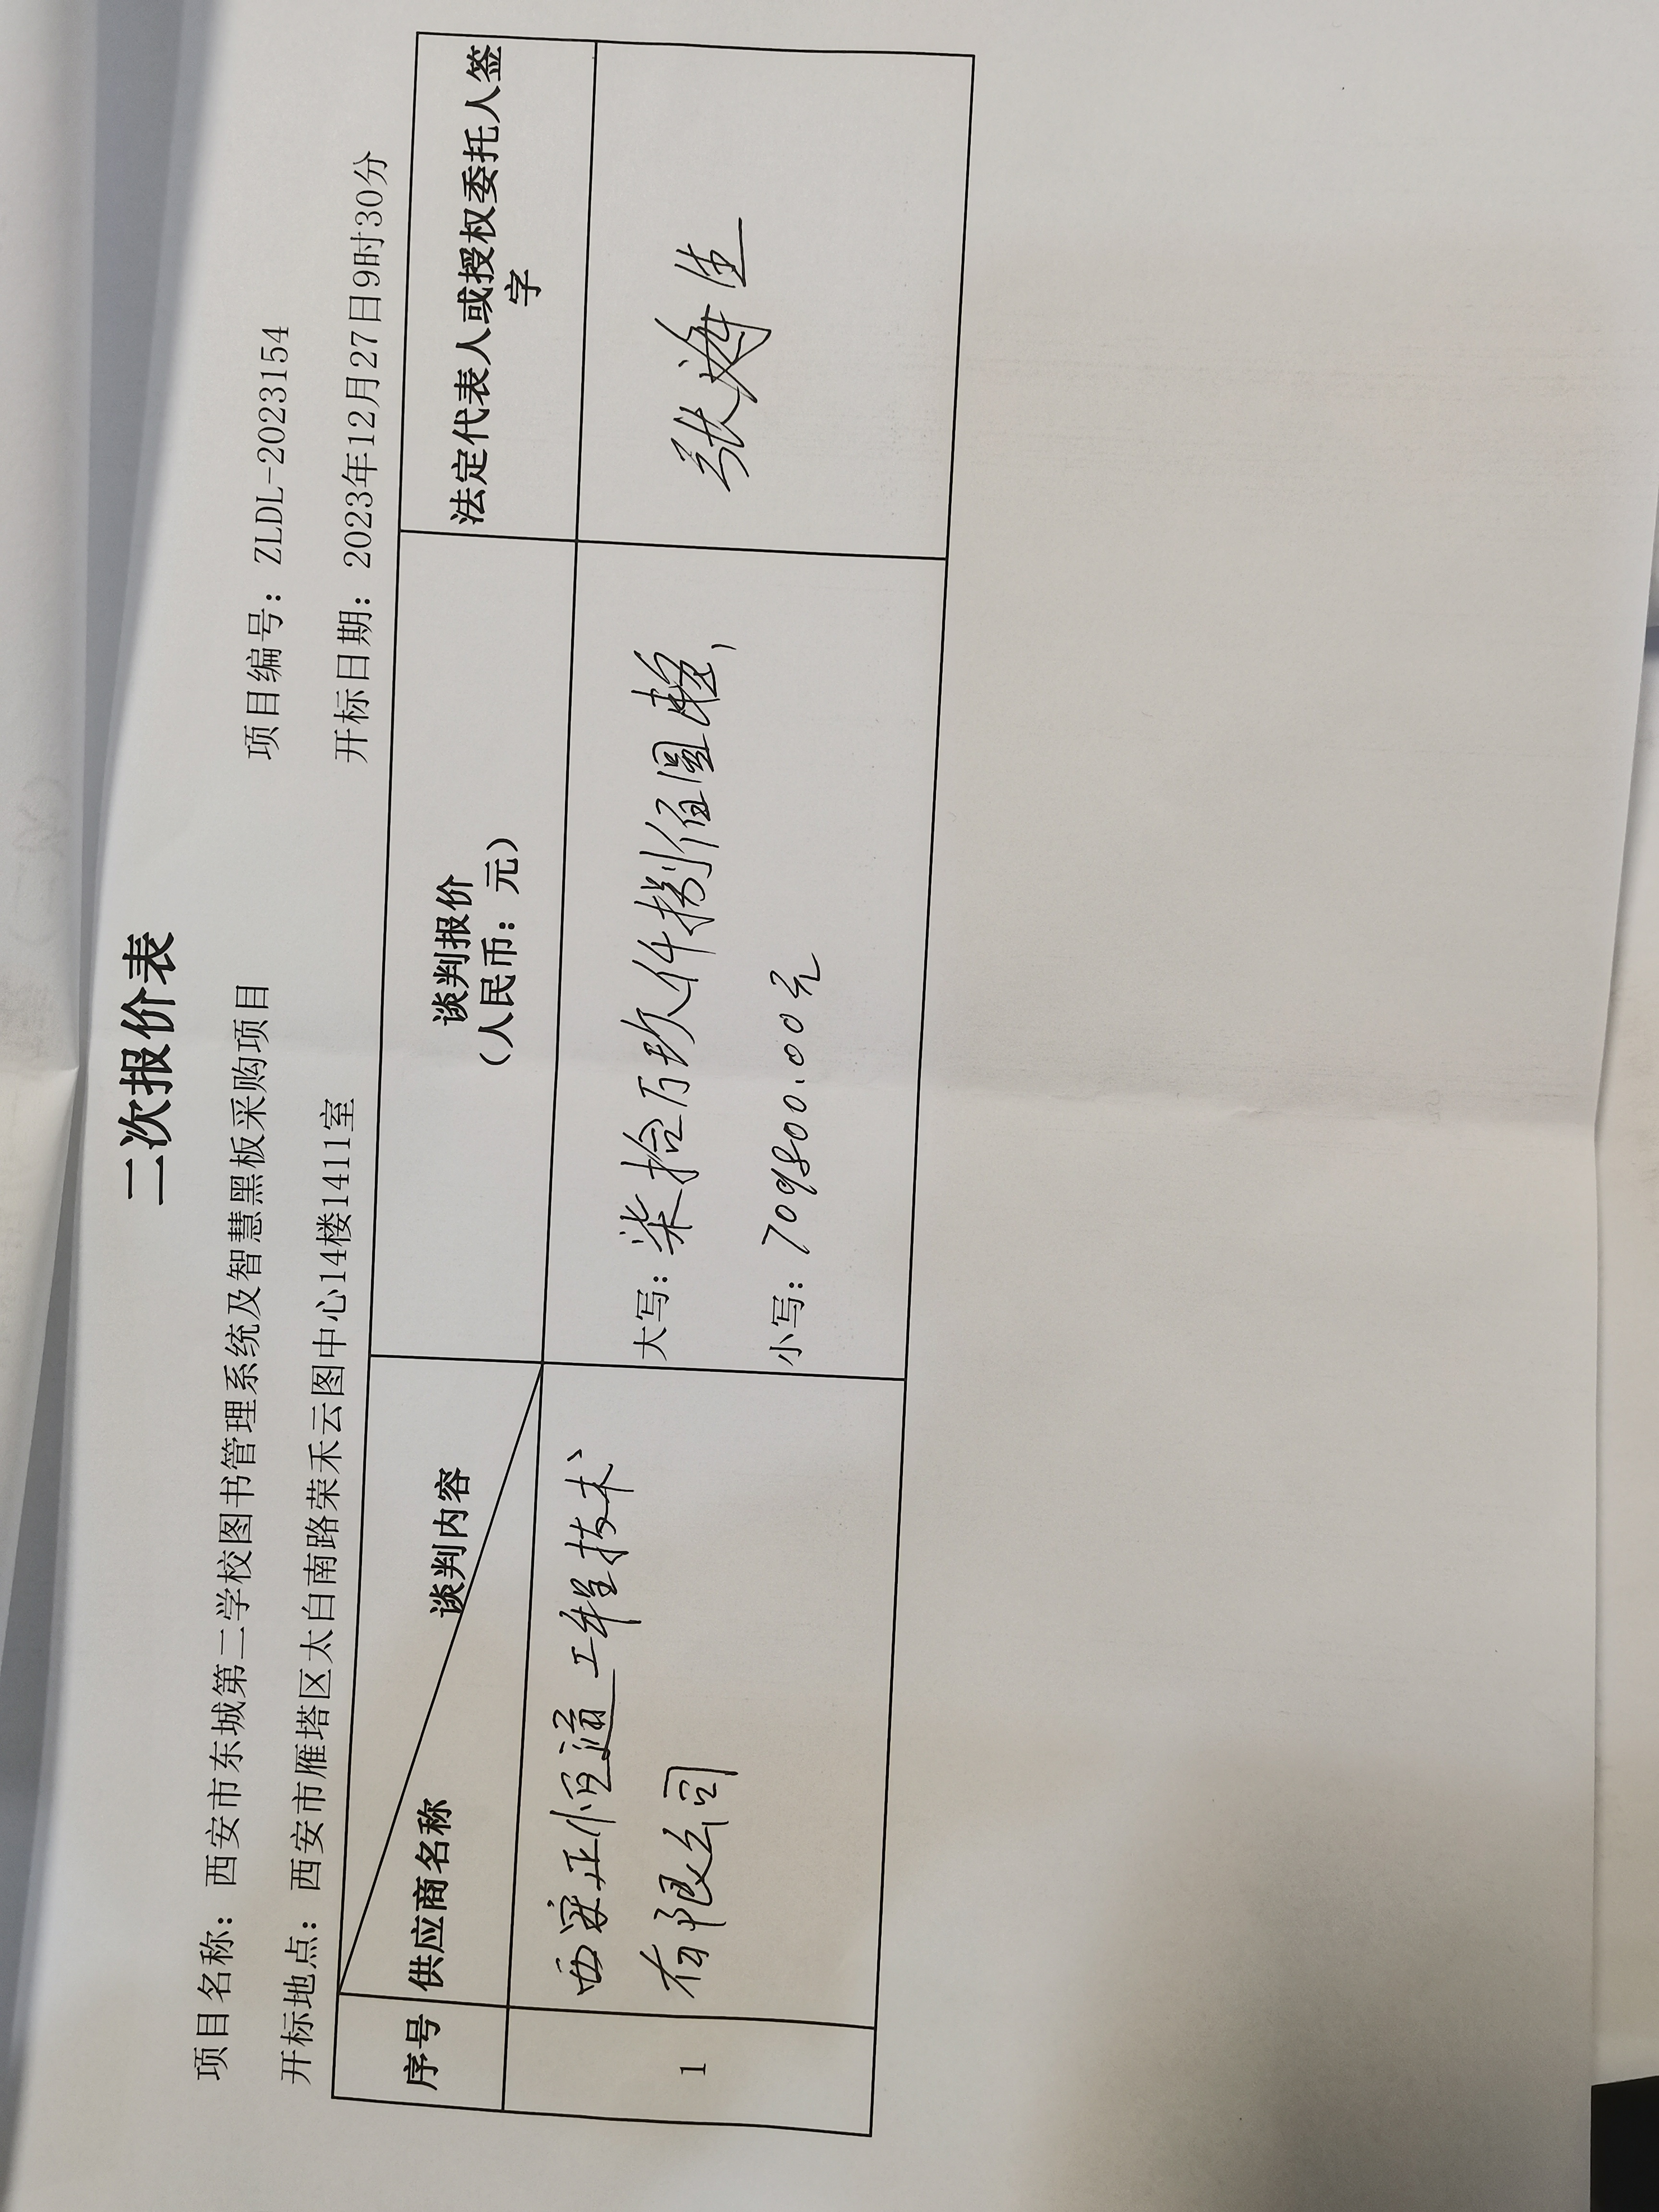 二次报价表
项目名称：西安市东城第二学校图书管理系统及智慧黑板采购项目 项目编号：ZLDL-2023154
开标地点：西安市雁塔区太白南路荣禾云图中心14楼1411室 开标日期：2023年12月27日9时30分
序号 供应商名称 谈判内容 谈判报价
（人民币：元） 法定代表人或授权委托人签
字
1 西安正恒道工程技术
有限公司
大写：柒拾万玖仟捌佰圆整
小写：709800.00元
张海生